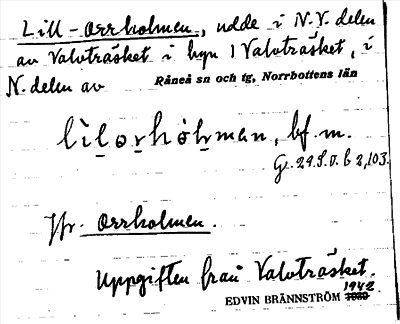 Lill-Orrholmen, udde i N.V. delen
av Valvträsket i byn 1 Valvträsket, i
N. delen av Råneå sn och tg, Norrbottens län
bf. m.
Gr. 29. S. D. b 2,103.
Jfr. Orrholmen.
Uppgiften från Valvträsket.
EDVIN BRÄNNSTRÖM 1942